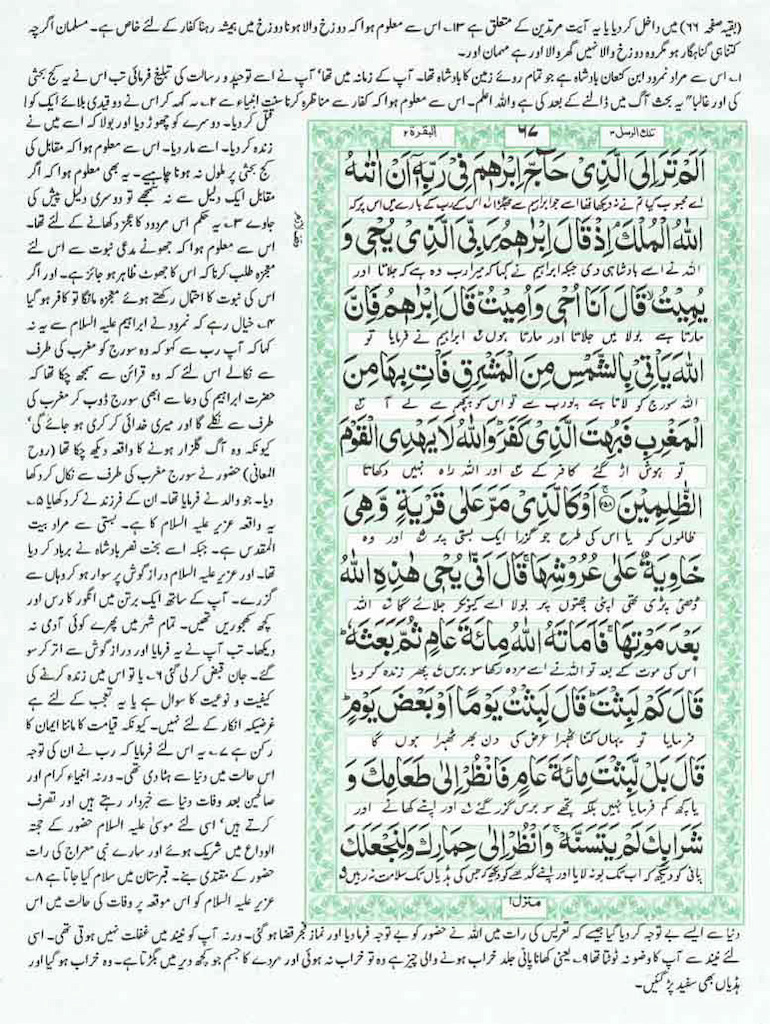 (بقیہ صفحہ ۶۶) میں داخل کر دیا یا یہ آیت مرتدین کے متعلق ہے ۱۳۔ اس سے معلوم ہوا کہ دوزخ والا ہونا دوزخ میں ہمیشہ رہنا کفار کے لئے خاص ہے۔ مسلمان اگرچہ
کتنا ہی گناہگار ہو مگر وہ دوزخ والا نہیں گھر والا اور ہے مہمان اور۔
۱۔ اس سے مراد نمرود ابن کنعان بادشاہ ہے جو تمام روئے زمین کا بادشاہ تھا۔ آپ کے زمانہ میں تھا' آپ نے اسے توحید و رسالت کی تبلیغ فرمائی تب اس نے یہ کج بحثی
کی اور غالباً" یہ بحث آگ میں ڈالنے کے بعد کی ہے واللہ اعلم۔ اس سے معلوم ہوا کہ کفار سے مناظرہ کرنا سنت انبیاء ہے ۲۔ یہ کہہ کر اس نے دو قیدی بلائے ایک کو
تلك الرسل ۳
۶۷
البقرة ۲
اَلَمْ تَرَ اِلَى الَّذِىْ حَآجَّ اِبْرٰهٖمَ فِىْ رَبِّهٖۤ اَنْ اٰتٰىهُ
اے محبوب کیا تم نے نہ دیکھا تھا اسے جو ابراہیم سے جھگڑا اس کے رب کے بارے میں اس پر کہ
اللّٰهُ الْمُلْكَ ۘ اِذْ قَالَ اِبْرٰهٖمُ رَبِّىَ الَّذِىْ يُحْىٖ وَ
اللہ نے اسے بادشاہی دی جبکہ ابراہیم نے کہا کہ میرا رب وہ ہے کہ جلاتا اور
يُمِيْتُ ۙ قَالَ اَنَا اُحْىٖ وَاُمِيْتُ ؕ قَالَ اِبْرٰهٖمُ فَاِنَّ
مارتا ہے بولا میں جلاتا اور مارتا ہوں ابراہیم نے فرمایا تو
اللّٰهَ يَاْتِىْ بِالشَّمْسِ مِنَ الْمَشْرِقِ فَاْتِ بِهَا مِنَ
اللہ سورج کو لاتا ہے پورب سے تو اس کو پچھم سے لے آ
الْمَغْرِبِ فَبُهِتَ الَّذِىْ كَفَرَ ؕ وَاللّٰهُ لَا يَهْدِى الْقَوْمَ
تو ہوش اڑ گئے کافر کے اور اللہ راہ نہیں دکھاتا
الظّٰلِمِيْنَ ۚ ﴿۲۵۸﴾ اَوْ كَالَّذِىْ مَرَّ عَلٰى قَرْيَةٍ وَّهِىَ
ظالموں کو یا اس کی طرح جو گزرا ایک بستی پر اور وہ
خَاوِيَةٌ عَلٰى عُرُوْشِهَا ۚ قَالَ اَنّٰى يُحْىٖ هٰذِهِ اللّٰهُ
ڈھئی پڑی تھی اپنی چھتوں پر بولا اسے کیونکر جلائے گا اللہ
بَعْدَ مَوْتِهَا ۚ فَاَمَاتَهُ اللّٰهُ مِائَةَ عَامٍ ثُمَّ بَعَثَهٗ ؕ
اس کی موت کے بعد تو اللہ نے اسے مردہ رکھا سو برس پھر زندہ کر دیا
قَالَ كَمْ لَبِثْتَ ؕ قَالَ لَبِثْتُ يَوْمًا اَوْ بَعْضَ يَوْمٍ ؕ
فرمایا تو یہاں کتنا ٹھہرا عرض کی دن بھر ٹھہرا ہوں گا
قَالَ بَلْ لَّبِثْتَ مِائَةَ عَامٍ فَانْظُرْ اِلٰى طَعَامِكَ وَ
یا کچھ کم فرمایا نہیں بلکہ تجھے سو برس گزر گئے اور اپنے کھانے اور
شَرَابِكَ لَمْ يَتَسَنَّهْ ۚ وَانْظُرْ اِلٰى حِمَارِكَ وَلِنَجْعَلَكَ
پانی کو دیکھ کہ اب تک بو نہ لایا اور اپنے گدھے کو دیکھ کہ جس کی ہڈیاں تک سلامت نہ رہیں
منزل ۱
قتل کر دیا۔ دوسرے کو چھوڑ دیا اور بولا کہ اسے میں نے
زندہ کر دیا۔ اسے مار دیا۔ اس سے معلوم ہوا کہ مقابل کی
کج بحثی پر ملول نہ ہونا چاہیے۔ یہ بھی معلوم ہوا کہ اگر
مقابل ایک دلیل سے نہ سمجھے تو دوسری دلیل پیش کی
جاوے ۳۔ یہ حکم اس مردود کا عجز دکھانے کے لئے تھا۔
اس سے معلوم ہوا کہ جھوٹے مدعی نبوت سے اس لئے
معجزہ طلب کرنا کہ اس کا جھوٹ ظاہر ہو جائز ہے۔ اور اگر
اس کی نبوت کا احتمال رکھتے ہوئے معجزہ مانگا تو کافر ہو گیا
۴۔ خیال رہے کہ نمرود نے ابراہیم علیہ السلام سے یہ نہ
کہا کہ آپ رب سے کہو کہ وہ سورج کو مغرب کی طرف
سے نکالے اس لئے کہ وہ قرائن سے سمجھ چکا تھا کہ
حضرت ابراہیم کی دعا سے ابھی سورج ڈوب کر مغرب کی
طرف سے نکلے گا اور میری خدائی کرکری ہو جائے گی'
کیونکہ وہ آگ گلزار ہونے کا واقعہ دیکھ چکا تھا (روح
المعانی) حضور نے سورج مغرب کی طرف سے نکال کر دکھا
دیا۔ جو والد نے فرمایا تھا۔ ان کے فرزند نے کر دکھایا ۵۔
یہ واقعہ عزیر علیہ السلام کا ہے۔ بستی سے مراد بیت
المقدس ہے۔ جبکہ اسے بخت نصر بادشاہ نے برباد کر دیا
تھا۔ اور عزیر علیہ السلام دراز گوش پر سوار ہو کر وہاں سے
گزرے۔ آپ کے ساتھ ایک برتن میں انگور کا رس اور
کچھ کھجوریں تھیں۔ تمام شہر میں پھرے کوئی آدمی نہ
دیکھا۔ تب آپ نے یہ فرمایا اور دراز گوش سے اتر کر سو
گئے۔ جان قبض کر لی گئی ۶۔ یا تو اس میں زندہ کرنے کی
کیفیت و نوعیت کا سوال ہے یا یہ تعجب کے لئے ہے
غرضیکہ انکار کے لئے نہیں۔ کیونکہ قیامت کا ماننا ایمان کا
رکن ہے ۷۔ یہ اس لئے فرمایا کہ رب نے ان کی توجہ
اس حالت میں دنیا سے ہٹا دی تھی۔ ورنہ انبیاء کرام اور
صالحین بعد وفات دنیا سے خبردار رہتے ہیں اور تصرف
کرتے ہیں' اسی لئے موسیٰ علیہ السلام حضور کے حجتہ
الوداع میں شریک ہوئے اور سارے نبی معراج کی رات
حضور کے مقتدی بنے۔ قبرستان میں سلام کیا جاتا ہے ۸۔
عزیر علیہ السلام کو اس موقعہ پر وفات کی حالت میں اس
دنیا سے ایسے بے توجہ کر دیا گیا جیسے کہ تعریس کی رات میں اللہ نے حضور کو بے توجہ فرما دیا اور نماز فجر قضا ہو گئی۔ ورنہ آپ کو نیند میں غفلت نہیں ہوتی تھی۔ اسی
لئے نیند سے آپ کا وضو نہ ٹوٹتا تھا ۹۔ یعنی کھانا پانی جلد خراب ہونے والی چیز ہے وہ تو خراب نہ ہوئی اور مردے کا جسم جو کچھ دیر میں بگڑتا ہے۔ وہ خراب ہو گیا اور
ہڈیاں بھی سفید پڑ گئیں۔